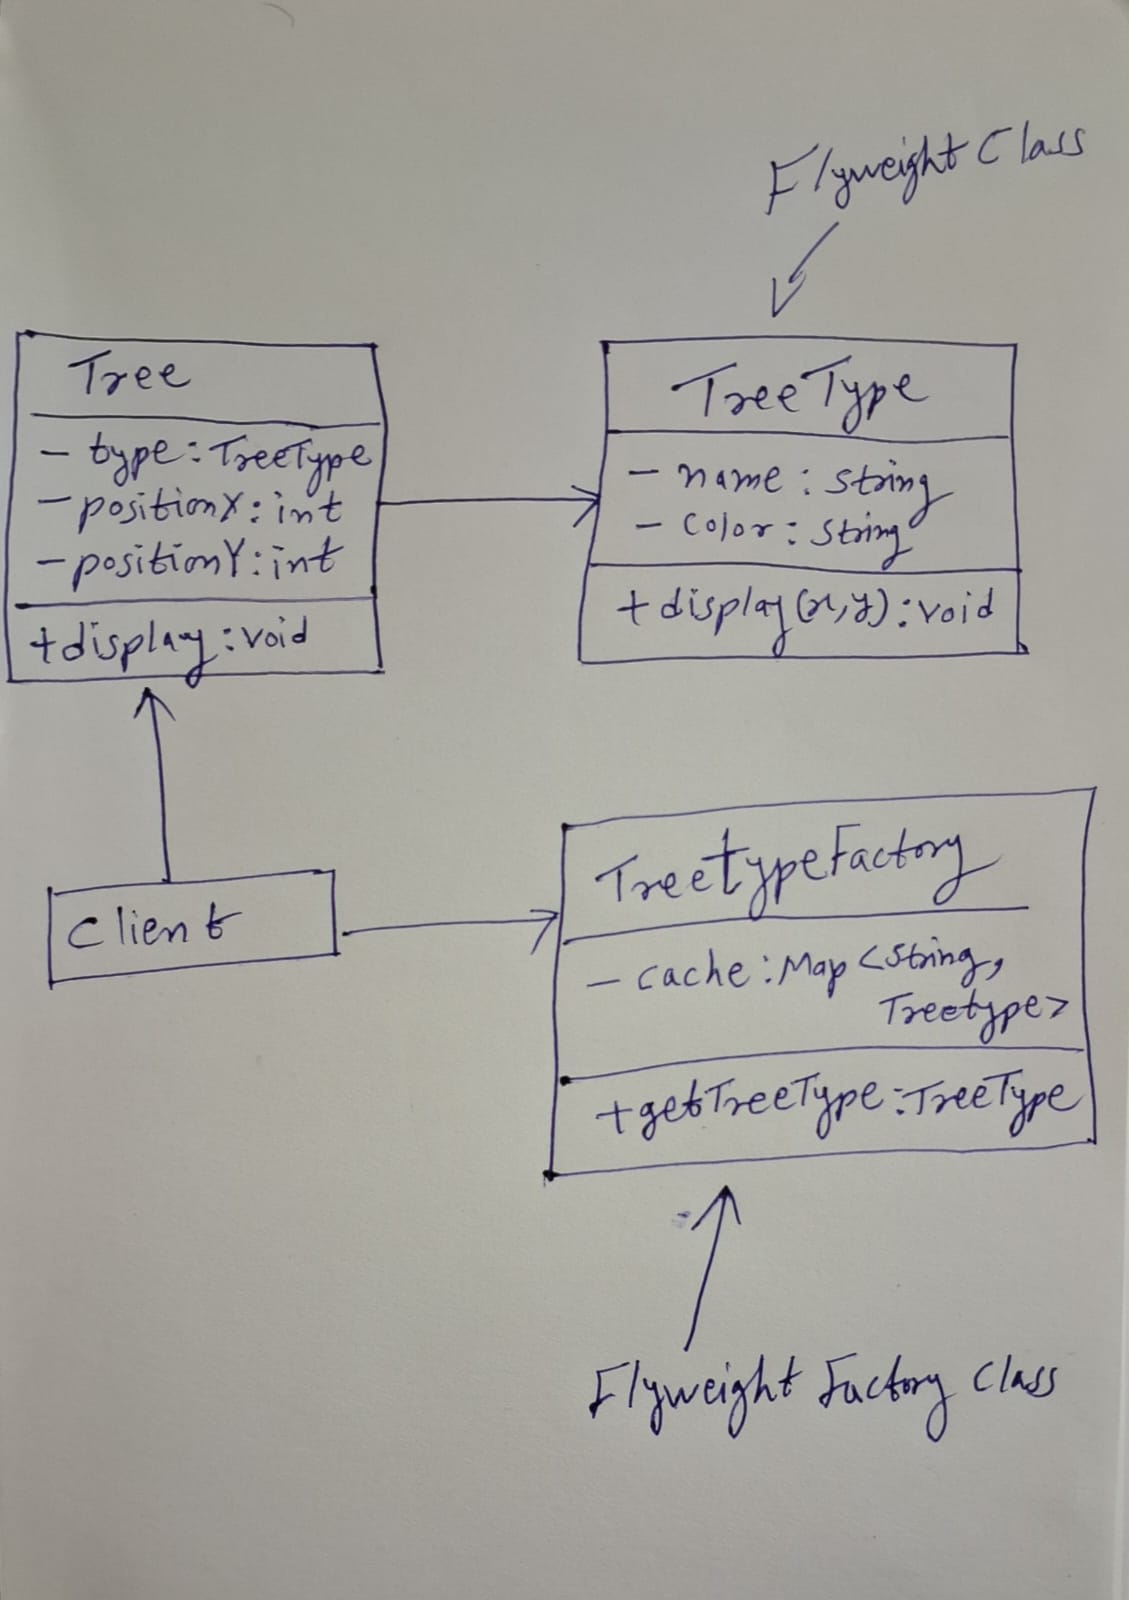 Flyweight Class
Tree
- type: TreeType
- positionX: int
- positionY: int
+display: void
TreeType
- name: String
- Color: String
+ display(x,y): void
Client
TreetypeFactory
- cache: Map <String,
Treetype>
+getTreeType: TreeType
Flyweight Factory Class